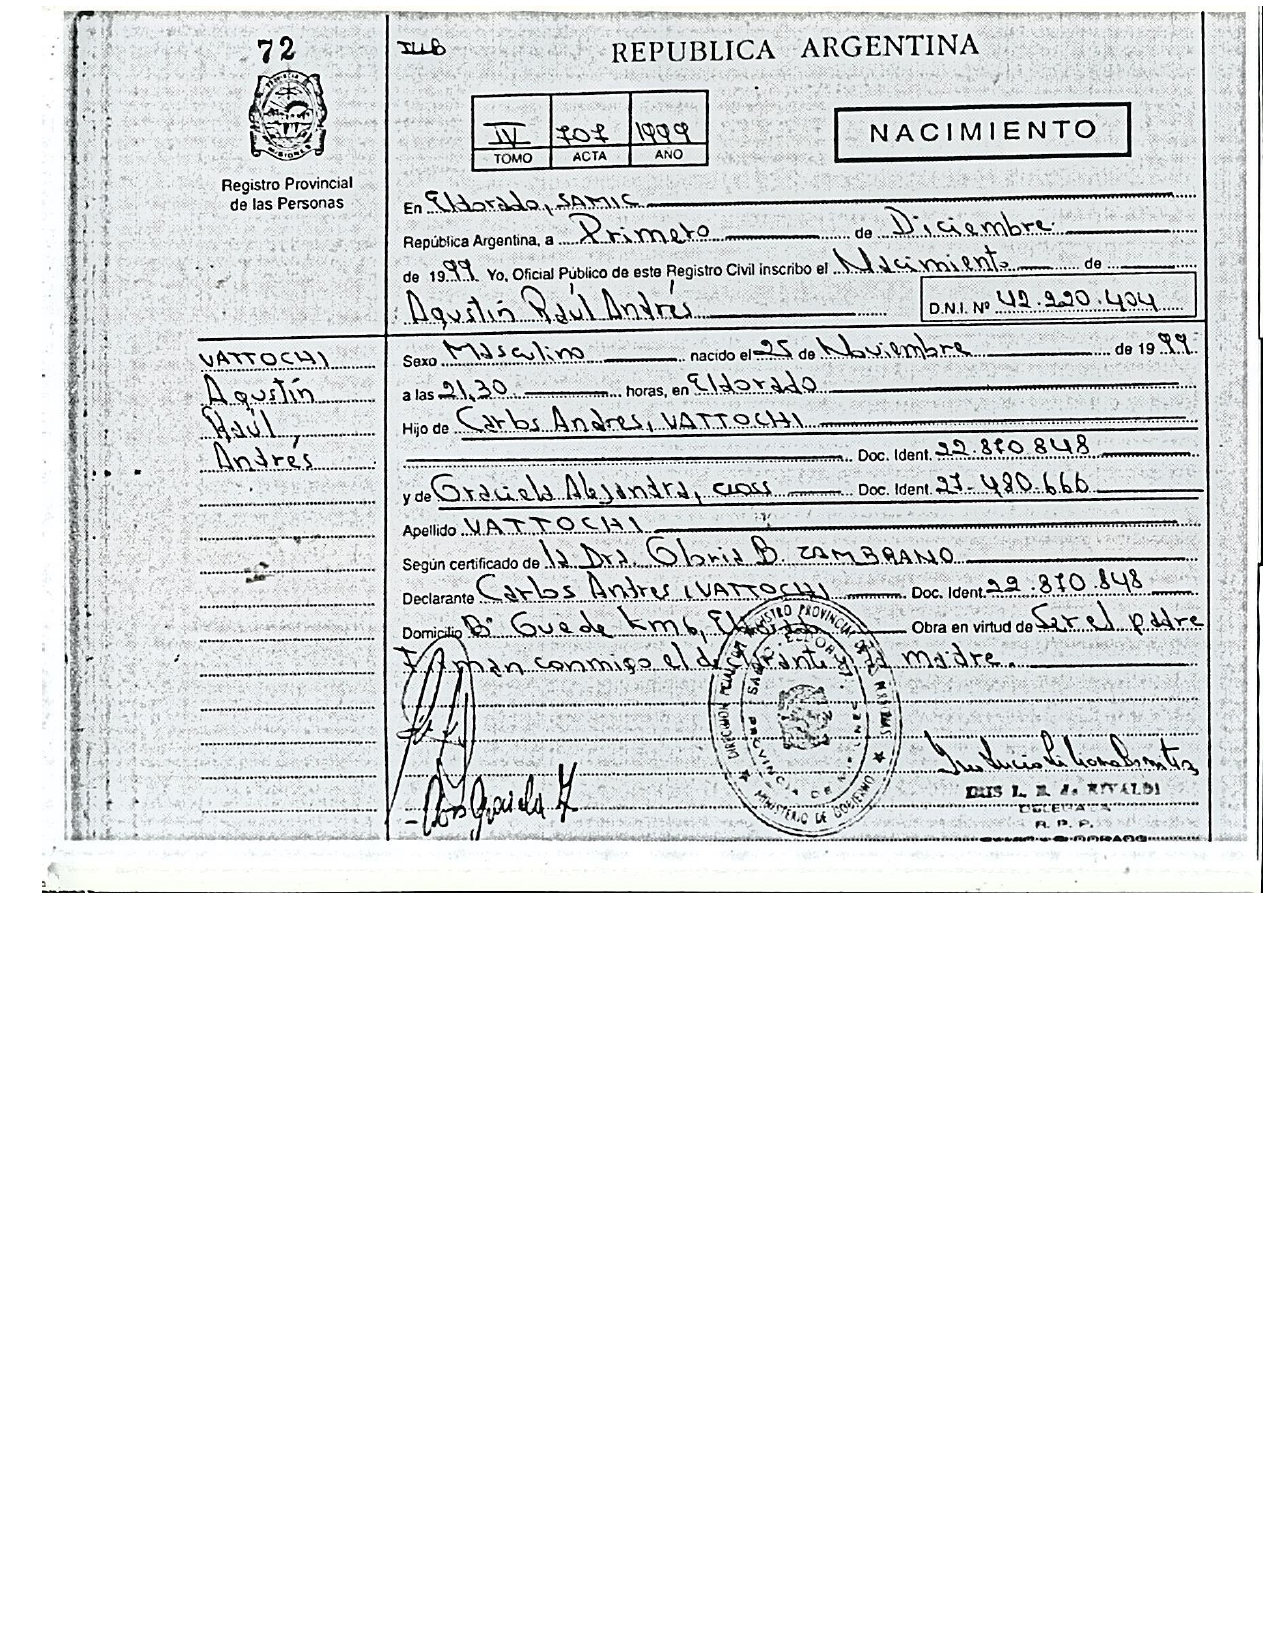 72
REPUBLICA ARGENTINA
IV 707 1999
TOMO ACTA AÑO
NACIMIENTO
MISIONES
Registro Provincial
de las Personas
En Eldorado, SAMIC
República Argentina, a Primero de Diciembre
de 1999 Yo, Oficial Público de este Registro Civil inscribo el Nacimiento de
Agustín Raúl Andrés D.N.I. Nº 42.220.404
VATTOCHI
Agustín
Raúl
Andrés
Sexo Masculino nacido el 25 de Noviembre de 1999.
a las 21,30 horas, en Eldorado
Hijo de Carlos Andres, VATTOCHI
Doc. Ident. 22.870.848
y de Graciela Alejandra, Doc. Ident. 27.480.666
Apellido VATTOCHI
Según certificado de la Dra. Gloria B. ZAMBRANO
Declarante Carlos Andres, VATTOCHI Doc. Ident. 22.870.848
Domicilio Bº Km 6, Eldorado Obra en virtud de Ser el padre
Firman conmigo el declarante y la madre.
DIRECCION REGISTRO PROVINCIAL DE LAS PERSONAS
MINISTERIO DE GOBIERNO
PROVINCIA DE
Graciela
L. B. de RIVALDI
DELEGADA
R. P. P.